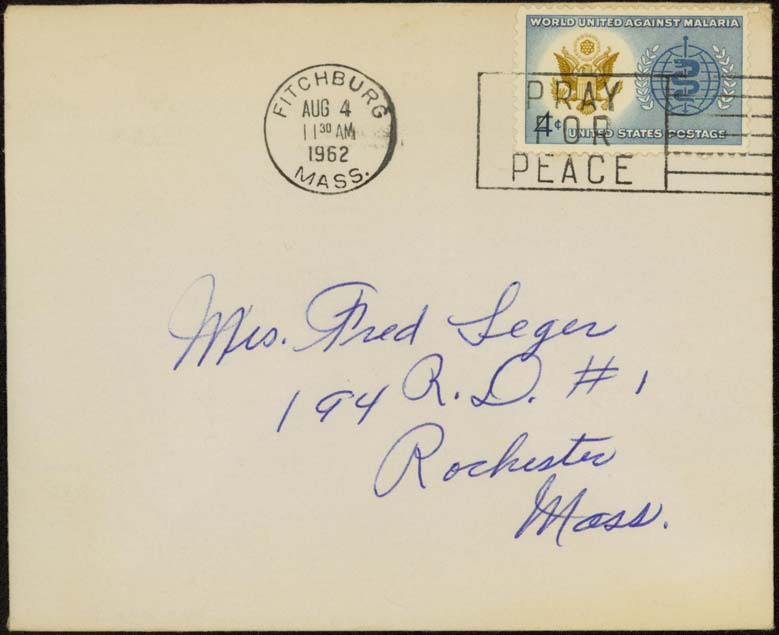 WORLD UNITED AGAINST MALARIA
4¢ UNITED STATES POSTAGE
FITCHBURG
AUG 4
11 30 AM
1962
MASS.
PRAY
FOR
PEACE
Mrs. Fred Leger
194 R.D. #1
Rochester
Mass.